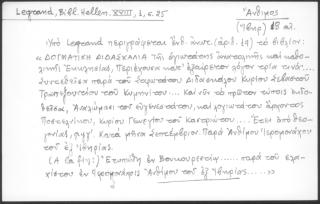 Legrand, Bibl. Hellen. XVIII, 1, σ. 25
Ἄνθιμος
(Ἰβηρ) 18 αἰ.
Ὑπὸ Legrand περιγράφεται ἔνθ. ἀνωτ. (ἀρ. 19) τὸ βιβλίον:
«ΔΟΓΜΑΤΙΚΗ ΔΙΔΑΣΚΑΛΙΑ τῆς ἁγιωτάτης ἀνατολικῆς καὶ καθο-
λικῆς Ἐκκλησίας, Περιέχουσα κατ' ἐξαίρετον λόγον τρία τινά....
Συντεθεῖσα παρὰ τοῦ σοφωτάτου Διδασκάλου Κυρίου Σεβαστοῦ
Τραπεζουντίου τοῦ Κυμηνίτου.... Καὶ νῦν τὸ πρῶτον τύποις ἐκδο-
θεῖσα, Ἀναλώμασι τοῦ εὐγενεστάτου, καὶ λογιωτάτου ἄρχοντος
Ποστελνίκου, Κυρίου Γεωργίου τοῦ Καστριώτου.... Ἔτει ἀπὸ θεο-
γονίας, αψγ'. Κατὰ μῆνα Σεπτέμβριον. Παρὰ Ἀνθίμου Ἱερομονάχου
τοῦ ἐξ Ἰβηρίας.
(A la fin:) Ἐτυπώθη ἐν Βουκουρεστίῳ..... παρὰ τοῦ ἐλα-
χίστου ἐν Ἱερομονάχοις Ἀνθίμου τοῦ ἐξ Ἰβηρίας.....»